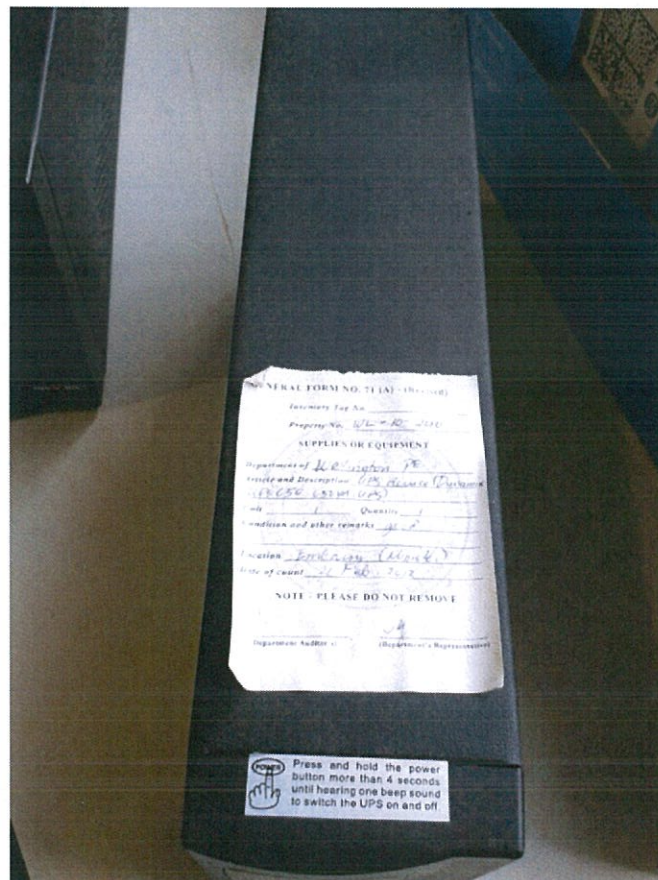 GENERAL FORM NO. 71 (A) - (Revised)
Inventory Tag No.
Property No. WL-10-
SUPPLIES OR EQUIPMENT
Department of Wellington PE
Article and Description UPS
650 UPS)
Unit 1 Quantity 1
Condition and other remarks
Location Embassy
Date of count Feb. 2012
NOTE - PLEASE DO NOT REMOVE
Department Auditor (Department's Representative)
POWER
Press and hold the power
button more than 4 seconds
until hearing one beep sound
to switch the UPS on and off.